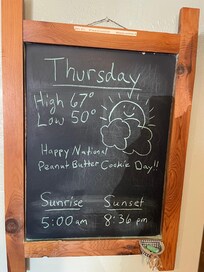 Thursday
High 67°
Low 50°
Happy National
Peanut Butter Cookie Day!!
Sunrise Sunset
5:00 am 8:36 pm